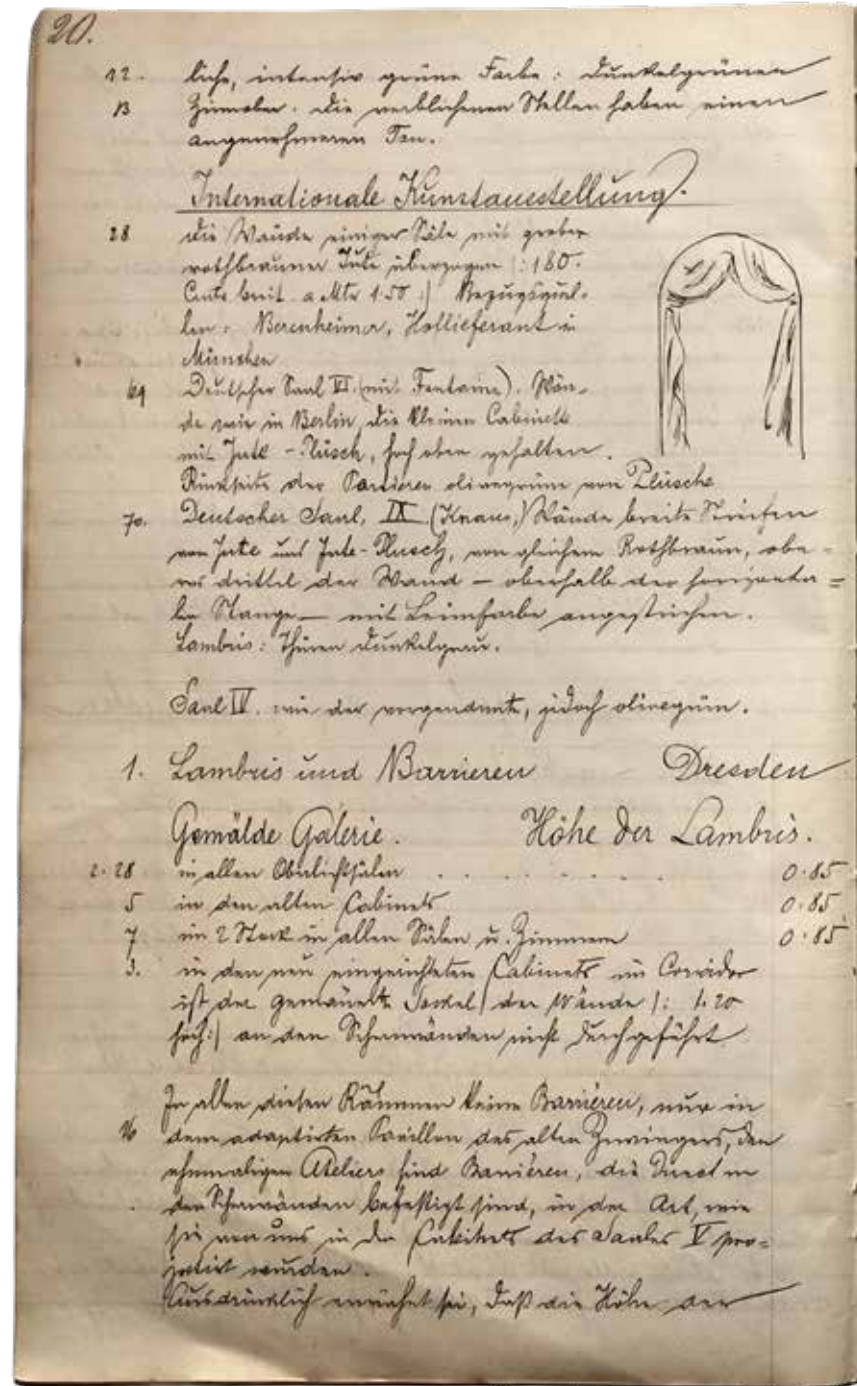 20.
12. liche, intensiv grüne Farbe: dunkelgrünen
13 Zinnober. Die verblichenen Stellen haben einen
angenehmeren Ton.
Internationale Kunstausstellung.
28 Die Wände einiger Säle mit grober
rothbrauner Jute überzogen |: 180.
Cmts breit a Mtr 1.50 :| Bezugsquel-
len: Bernheimer, Hoflieferant in
München
69 Deutscher Saal VI. (mit Fontaine). Wän-
de wie in Berlin, die kleinen Cabinette
mit Jute-Plüsch, hoch oben gehalten.
Rückseite der Portieren olivegrüne von Plüsche
70. Deutscher Saal, IX (Knaus,) Wände breite Streifen
von Jute und Jute-Plusch, von gleichem Rothbraun, obe-
res drittel der Wand – oberhalb der horizonta=
len Stange – mit Leimfarbe angestrichen.
Lambris: Thüren dunkelgrau.
Saal IV. wie der vorgenannte, jedoch olivegrün.
1. Lambris und Barrieren Dresden
Gemälde Galerie. Höhe der Lambris.
2.28 in allen Oberlichtsälen . . . . . . . 0.85
5 in den alten Cabinets 0.85
7 im 2 Stock in allen Sälen u. Zimmern 0.85
3. in den neu eingerichteten Cabinets im Corridor
ist der gemauerte Sockel der Wände |: 1.20
hoch :| an den Scherwänden nicht durchgeführt
In allen diesen Räumen keine Barrièren, nur in
16 dem adaptirten Pavillon des alten Zwingers, den
ehemaligen Ateliers sind Barrièren, die direct an
den Scherwänden befestigt sind, in der Art, wie
sie von uns in den Cabinets des Saales V pro=
jectirt wurden.
Ausdrücklich erwähnt sei, daß die Höhe der